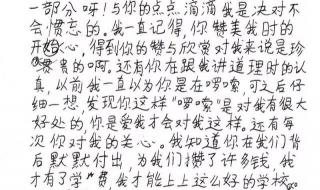 一部分呀！与你的点点滴滴我是决对不
会惯忘的。我一直记得，你赞美我时的
开心，得到你的赞与欣赏对我来说是珍
贵的啊。还有你在跟我讲道理时的认
真，以前我一直以为你是在啰索，可之后仔
细一想，发现你这样"啰索"是对我有很大
好处的，你是爱我才会对我这样。还有每
次你对我的关心。我知道你在我们背
后默默付出，为我们攒了许多钱，我
才有了学费，我才能上上这么好的学校。